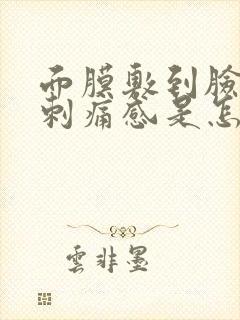 而膜敷到臉
刺痛感是怎
雲非墨